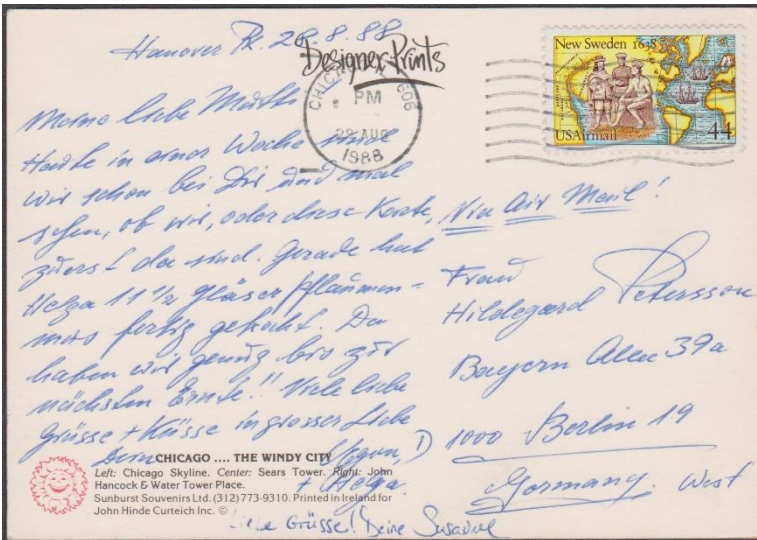 Hanover Pk. 28.8.88
Designer Prints
CHICAGO, IL 606
PM
29 AUG
1988
New Sweden 1638
USAirmail 44
Meine liebe Mutti
Heute in einer Woche sind
wir schon bei Dir und mal
sehen, ob wir, oder diese Karte,
zuerst da sind. Gerade hat
Helga 11 1/2 Gläser Pflaumen-
mus fertig gekocht. Da
haben wir genug bis zur
nächsten Ernte!! Viele liebe
Grüsse + Küsse in grosser Liebe
Dein
+ Helga.
Liebe Grüsse! Deine Susanne
Via Air Mail!
Frau
Hildegard Petersson
Bayern Allee 39a
1000 Berlin 19
Germany. West
CHICAGO .... THE WINDY CITY
Left: Chicago Skyline. Center: Sears Tower. Right: John
Hancock & Water Tower Place.
Sunburst Souvenirs Ltd. (312) 773-9310. Printed in Ireland for
John Hinde Curteich Inc. ©